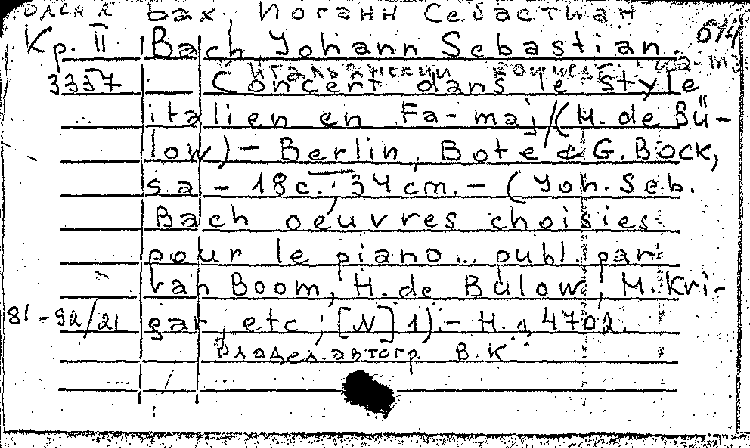 Бах Иоганн Себастиан
Кр. II Bach Johann Sebastian.
3357 Concert dans le style
italien en Fa-maj (H. de Bü-
low) – Berlin, Bote & G. Bock,
s.a – 18 c.; 34 cm. – (Joh. Seb.
Bach oeuvres choisies
pour le piano... publ. par
van Boom, H. de Bülow, M. Kri-
81-92/21 gar, etc; [N] 1). – Н. д. 4702.
Владел. автогр. В. К